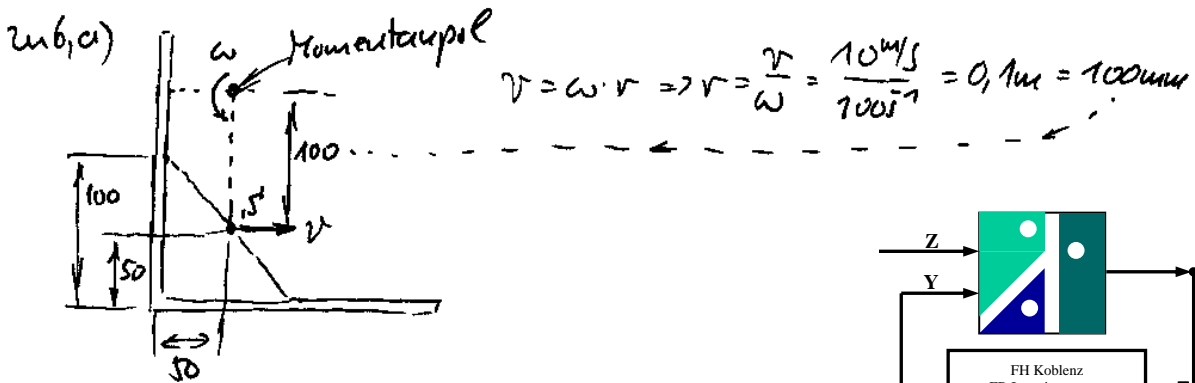 zu 6, a)
ω Momentanpol
v = ω · r => r = v/ω = 10 m/s / 100 s⁻¹ = 0,1 m = 100 mm
100
100
S
v
50
50
Z
Y
FH Koblenz